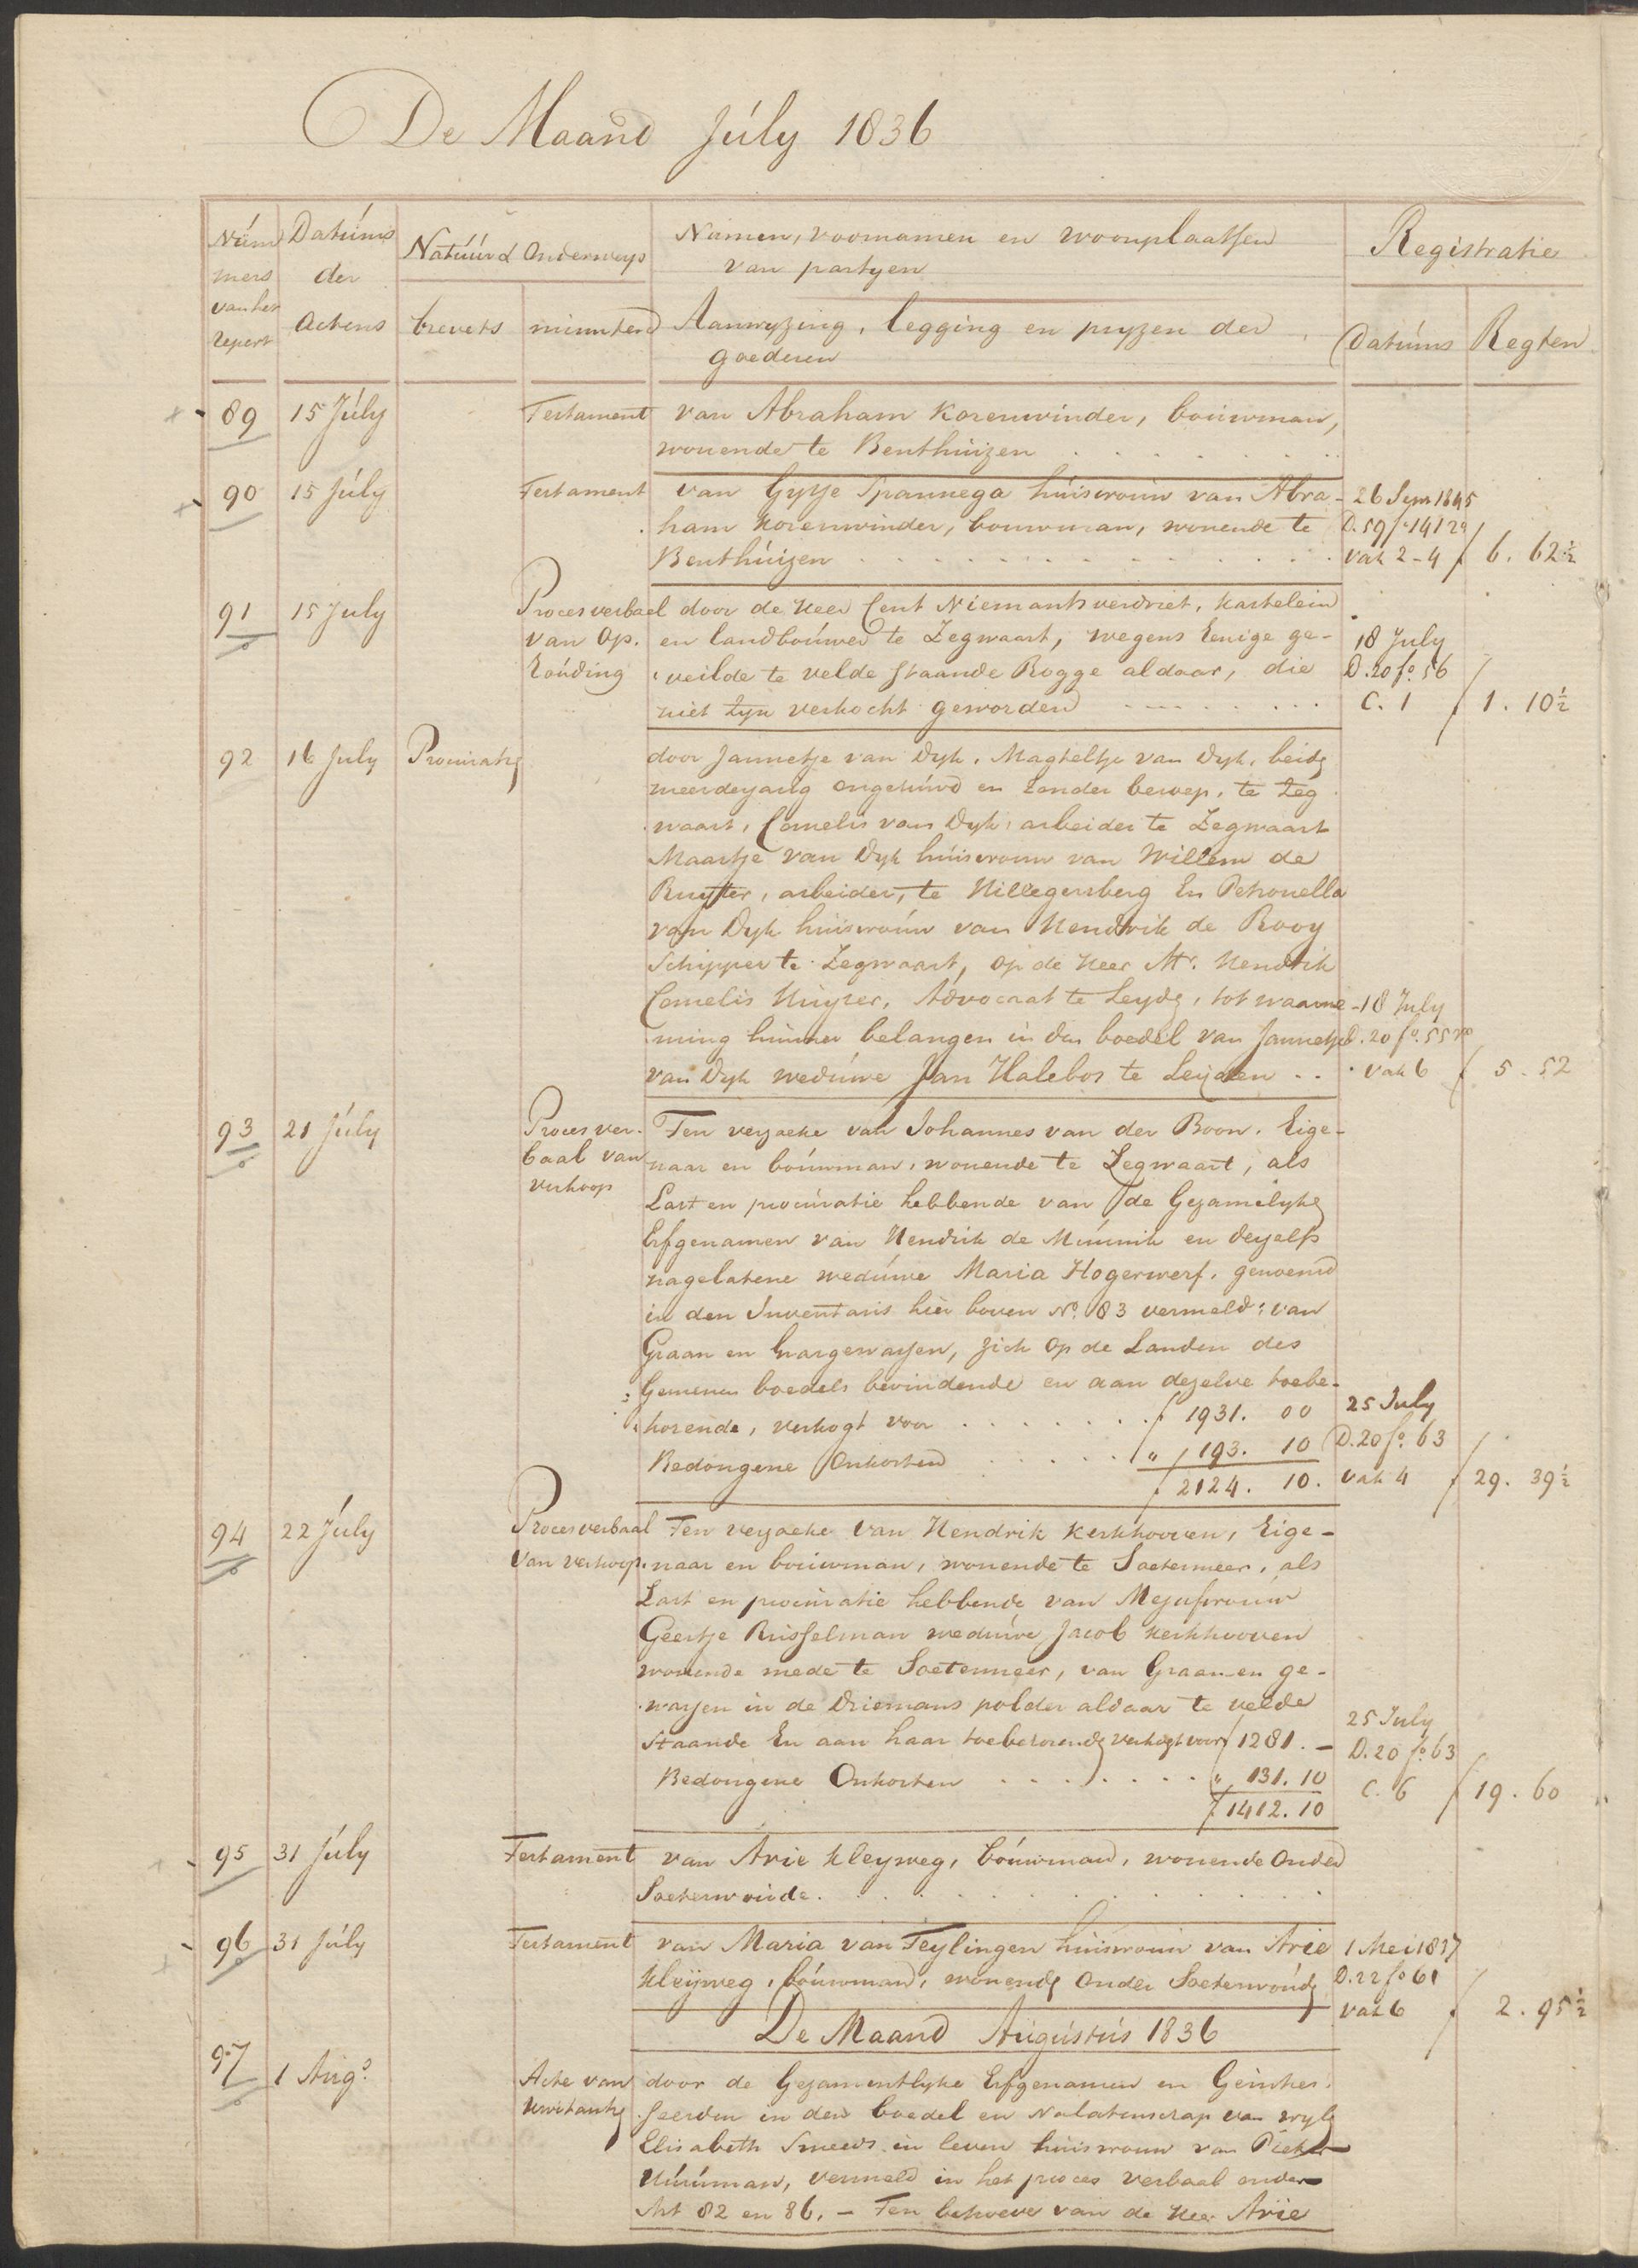 De Maand July 1836
Num
mers
van het
repert
Datums
der
Actens
Natuur d Onderwerps
brevets
minuten
Namen, voornamen en woonplaatsen
van partyen
Aanwyzing, legging en pryzen der
goederen
Registratie
Datums
Regten
89 15 July Testament van Abraham Korenwinder, bouwman,
wonende te Benthuizen
90 15 July Testament van Gytje Spannega huisvrouw van Abra- 26 Sepr 1845
ham Korenwinder, bouwman, wonende te D. 59 fo 141 ro
Benthuizen vak 2-4 f 6. 62½
91 15 July Procesverbael door de Heer Cent Niemantsverdriet, kastelein
van Op- en landbouwer te Zegwaart, wegens Eenige ge- 18 July
houding veilde te velde staande Rogge aldaar, die D. 20 fo. 56
niet zyn verkocht geworden C. 1 f 1. 10½
92 16 July Procuratie door Jannetje van Dyk, Magteltje van Dyk, beide
meerderjarig ongehuwd en zonder beroep, te Zeg
waart, Cornelis van Dyk, arbeider te Zegwaart
Maartje van Dyk huisvrouw van Willem de
Ruyter, arbeider, te Hillegersberg En Petronella
van Dyk huisvrouw van Hendrik de Rooy
Schipper te Zegwaart, op de Heer Mr. Hendrik
Cornelis Huyser, Advocaat te Leyde, tot waarne- 18 July
ming hunner belangen in den boedel van Jannetje D. 20 fo. 55 vo
van Dyk weduwe Jan Halebos te Leijden vak 6 f 5. 52
93 21 July Proces ver- Ten verzoeke van Johannes van der Boon, Eige-
baal van naar en bouwman, wonende te Zegwaart, als
verkoop Last en procuratie hebbende van de Gezamelyke
Erfgenamen van Hendrik de Munnik en deszelfs
nagelatene weduwe Maria Hogerwerf, genoemd
in den Inventaris hier boven No. 83 vermeld; van
Graan en hargewassen, zich op de Landen des
Gemenen boedels bevindende en aan dezelve toebe-
horende, verkogt voor f 1931. 00 25 July
Bedongene Onkosten " 193. 10 D. 20 fo. 63
f 2124. 10. vak 4 f 29. 39½
94 22 July Procesverbaal Ten verzoeke van Hendrik Kerkhooven, Eige-
van verkoop. naar en bouwman, wonende te Soetermeer, als
Last en procuratie hebbende van Mejufvrouw
Geertje Russelman weduwe Jacob Kerkhooven
wonende mede te Soetermeer, van Graan en ge-
wassen in de Driemans polder aldaar te velde
Staande En aan haar toebehorende verkogt voor f 1281. – 25 July
D. 20 fo. 63
Bedongene Onkosten " 131. 10 C. 6 f 19. 60
f 1412. 10
95 31 July Testament van Arie Kleyweg, bouwman, wonende Onder
Soeterwoude.
96 31 July Testament van Maria van Teylingen huisvrouw van Arie 1 Mei 1837
Kleijweg, bouwman, wonende Onder Soeterwoude D. 22 fo 61
vak 6 f 2. 95½
De Maand Augustus 1836
97 1 Augs. Acte van door de Gezamentlyke Erfgenamen en Geinthes-
kwitantie seerden in den boedel en Nalatenschap van wyle
Elisabeth Smeeds in leven huisvrouw van Pieter
Uuuman, vermeld in het proces verbaal onder
Art 82 en 86. – Ten behoeve van de Heer Arie